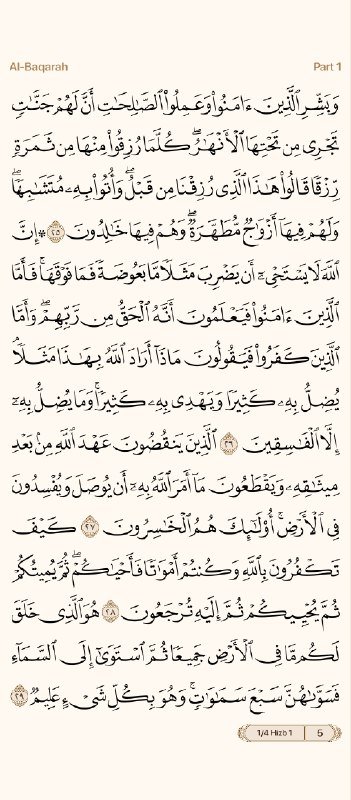 Al-Baqarah
Part 1
وَبَشِّرِ ٱلَّذِينَ ءَامَنُوا۟ وَعَمِلُوا۟ ٱلصَّـٰلِحَـٰتِ أَنَّ لَهُمْ جَنَّـٰتٍ
تَجْرِى مِن تَحْتِهَا ٱلْأَنْهَـٰرُ ۖ كُلَّمَا رُزِقُوا۟ مِنْهَا مِن ثَمَرَةٍ
رِّزْقًا قَالُوا۟ هَـٰذَا ٱلَّذِى رُزِقْنَا مِن قَبْلُ ۖ وَأُتُوا۟ بِهِۦ مُتَشَـٰبِهًا ۖ
وَلَهُمْ فِيهَآ أَزْوَٰجٌ مُّطَهَّرَةٌ ۖ وَهُمْ فِيهَا خَـٰلِدُونَ ٢٥ ۞ إِنَّ
ٱللَّهَ لَا يَسْتَحْىِۦٓ أَن يَضْرِبَ مَثَلًا مَّا بَعُوضَةً فَمَا فَوْقَهَا ۚ فَأَمَّا
ٱلَّذِينَ ءَامَنُوا۟ فَيَعْلَمُونَ أَنَّهُ ٱلْحَقُّ مِن رَّبِّهِمْ ۖ وَأَمَّا
ٱلَّذِينَ كَفَرُوا۟ فَيَقُولُونَ مَاذَآ أَرَادَ ٱللَّهُ بِهَـٰذَا مَثَلًا ۘ
يُضِلُّ بِهِۦ كَثِيرًا وَيَهْدِى بِهِۦ كَثِيرًا ۚ وَمَا يُضِلُّ بِهِۦٓ
إِلَّا ٱلْفَـٰسِقِينَ ٢٦ ٱلَّذِينَ يَنقُضُونَ عَهْدَ ٱللَّهِ مِنۢ بَعْدِ
مِيثَـٰقِهِۦ وَيَقْطَعُونَ مَآ أَمَرَ ٱللَّهُ بِهِۦٓ أَن يُوصَلَ وَيُفْسِدُونَ
فِى ٱلْأَرْضِ ۚ أُو۟لَـٰٓئِكَ هُمُ ٱلْخَـٰسِرُونَ ٢٧ كَيْفَ
تَكْفُرُونَ بِٱللَّهِ وَكُنتُمْ أَمْوَٰتًا فَأَحْيَـٰكُمْ ۖ ثُمَّ يُمِيتُكُمْ
ثُمَّ يُحْيِيكُمْ ثُمَّ إِلَيْهِ تُرْجَعُونَ ٢٨ هُوَ ٱلَّذِى خَلَقَ
لَكُم مَّا فِى ٱلْأَرْضِ جَمِيعًا ثُمَّ ٱسْتَوَىٰٓ إِلَى ٱلسَّمَآءِ
فَسَوَّىٰهُنَّ سَبْعَ سَمَـٰوَٰتٍ ۚ وَهُوَ بِكُلِّ شَىْءٍ عَلِيمٌ ٢٩
1/4 Hizb 1
5